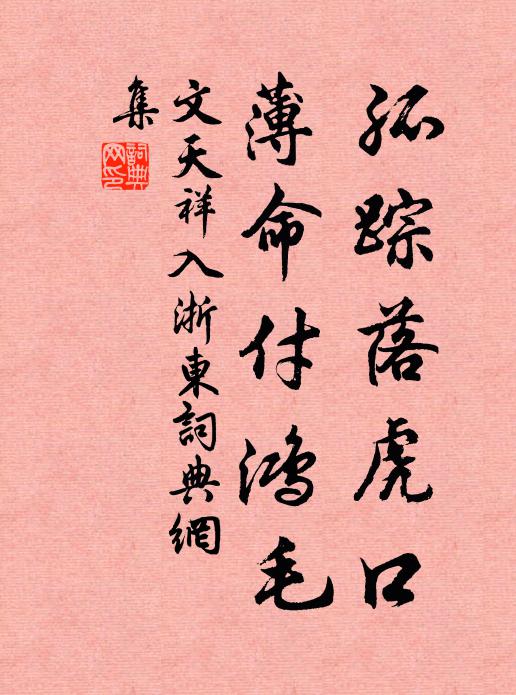 孤踪落虎口
薄命付鴻毛
文天祥入浙東詞典網
集
詞典網印